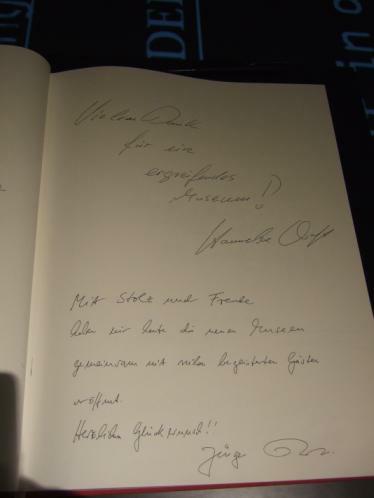 Vielen Dank
für ein
ergreifendes
Museum!
Hannelore Kraft
Mit Stolz und Freude
haben wir heute die neuen Museen
gemeinsam mit vielen begeisterten Gästen
eröffnet.
Herzlichen Glückwunsch!!
Jürgen